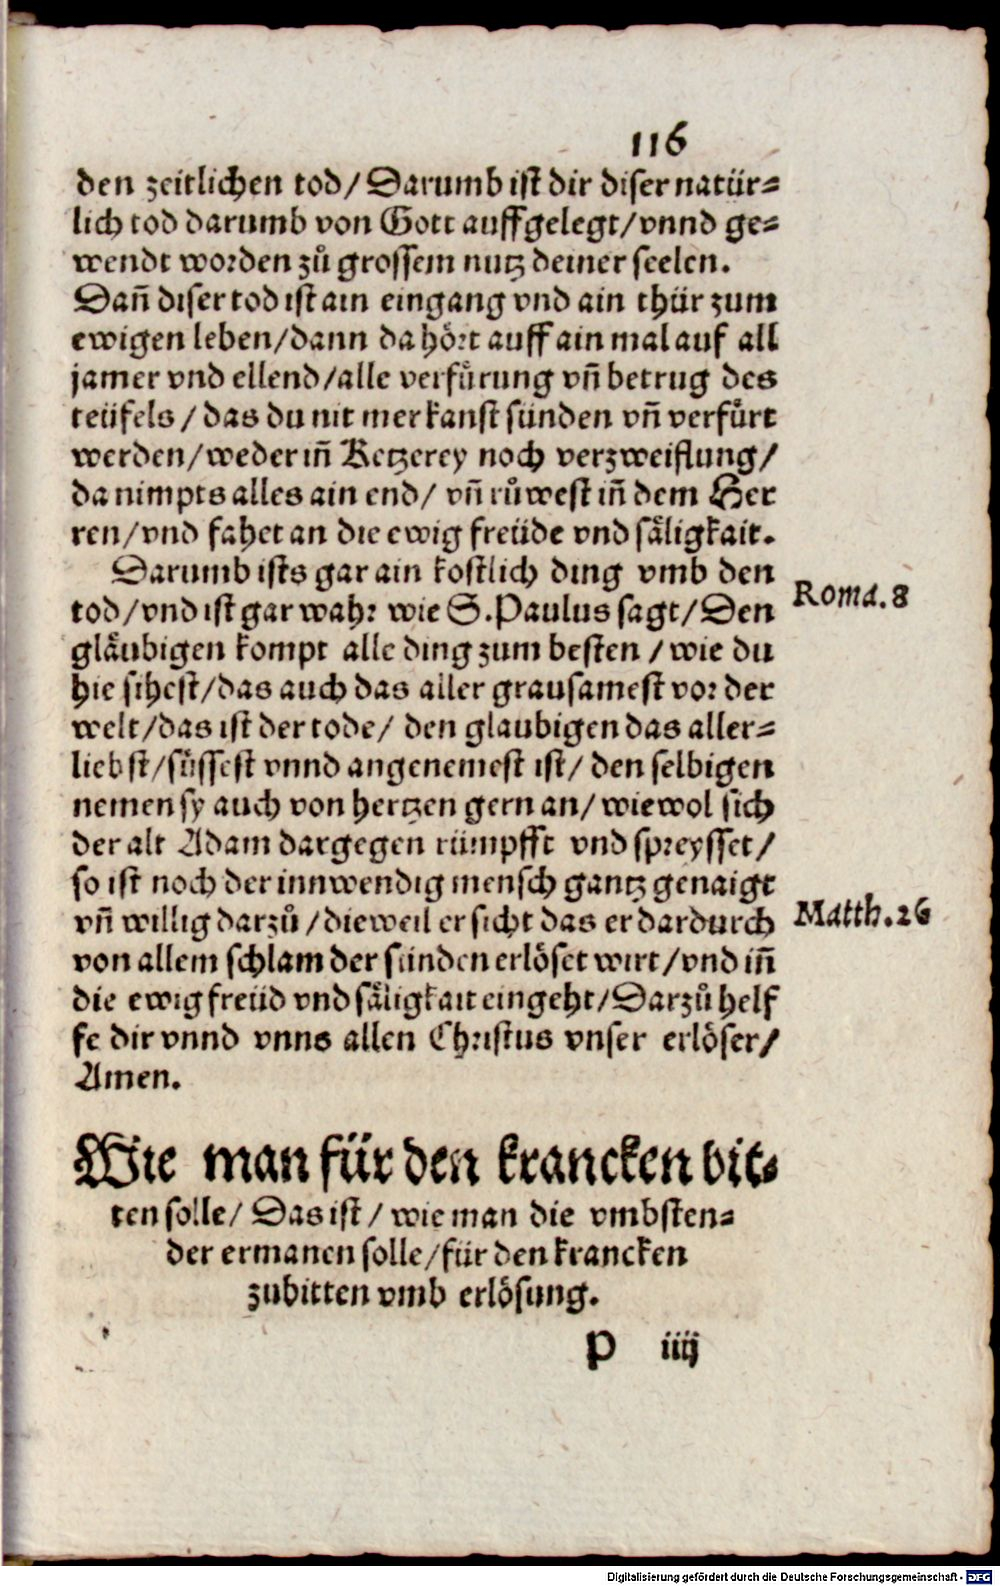 116
den zeitlichen tod/ Darumb ist dir diser natür-
lich tod darumb von Gott auffgelegt/ vnnd ge-
wendt worden zů grossem nutz deiner seelen.
Dañ diser tod ist ain eingang vnd ain thür zum
ewigen leben/ dann da hört auff ain mal auf all
jamer vnd ellend/ alle verfürung vñ betrug des
teüfels/ das du nit mer kanst sünden vñ verfürt
werden/ weder iñ Ketzerey noch verzweiflung/
da nimpts alles ain end/ vñ růwest iñ dem Her
ren/ vnd fahet an die ewig freüde vnd säligkait.
Darumb ists gar ain kostlich ding vmb den
tod/ vnd ist gar wahr wie S. Paulus sagt/ Den
Roma. 8
gläubigen kompt alle ding zum besten/ wie du
hie sihest/ das auch das aller grausamest vor der
welt/ das ist der tode/ den glaubigen das aller-
liebst/ süssest vnnd angenemest ist/ den selbigen
nemen sy auch von hertzen gern an/ wiewol sich
der alt Adam dargegen rümpfft vnd spreysset/
so ist noch der innwendig mensch gantz genaigt
vñ willig darzů/ dieweil er sicht das er dardurch
Matth. 26
von allem schlam der sünden erlöset wirt/ vnd iñ
die ewig freüd vnd säligkait eingeht/ Darzů helf
fe dir vnnd vnns allen Christus vnser erlöser/
Amen.
Wie man für den krancken bit-
ten solle/ Das ist/ wie man die vmbsten-
der ermanen solle/ für den krancken
zubitten vmb erlösung.
P iiij
Digitalisierung gefördert durch die Deutsche Forschungsgemeinschaft - DFG